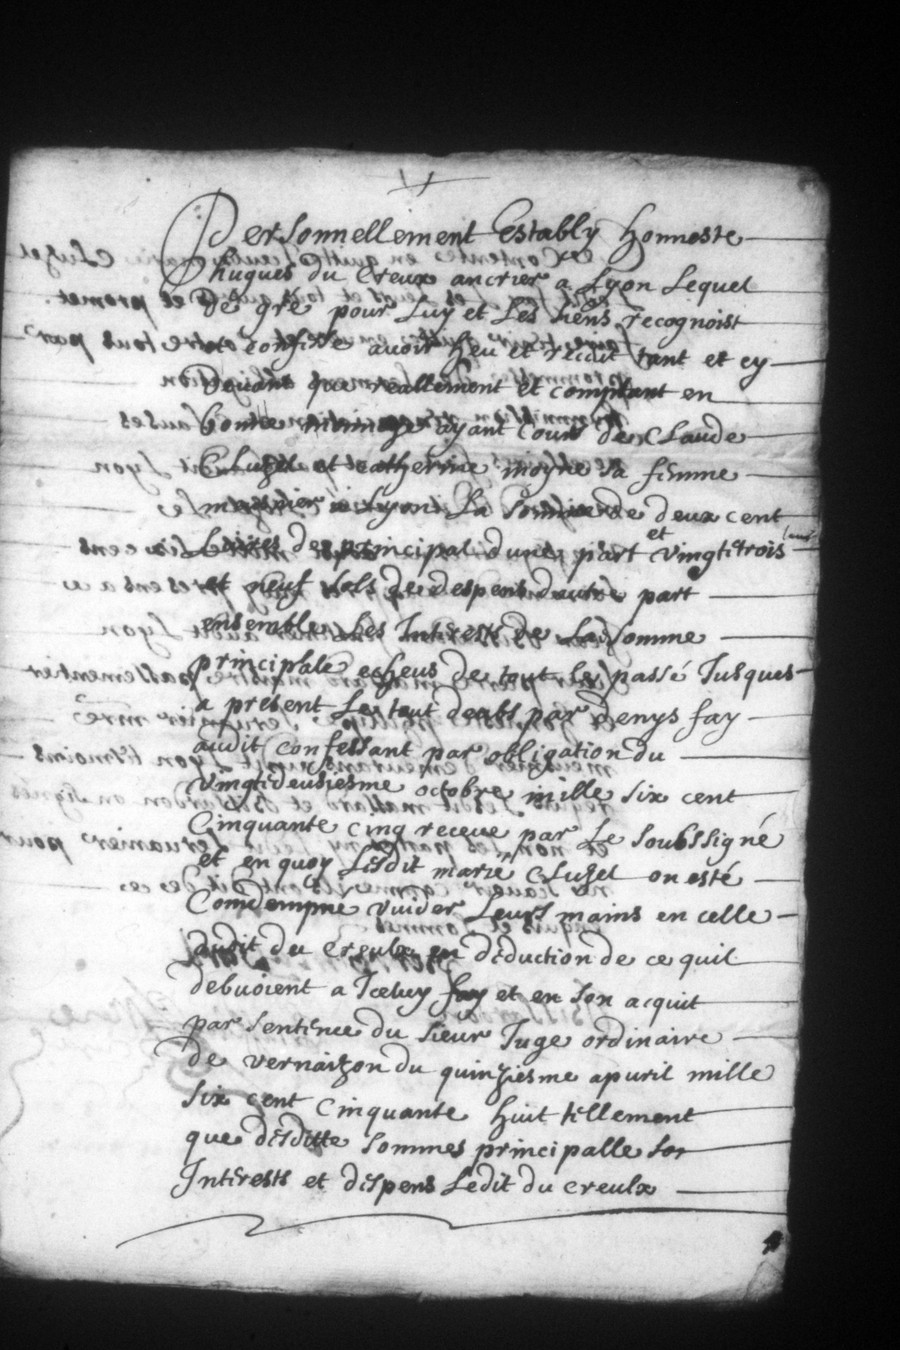 Personnellement Estably honneste
hugues du Creux ancrier a Lyon Lequel
De gré pour Luy et Les siens recognoist
et confesse avoir heu et receut tant et cy
Devant que reallement et comptant en
bonne monnoye ayant cours de Claude
Cluzel et Catherine moyne sa femme
a Lyon La Somme de deux cent
Livres de principal dune part et vingttrois
et neuf sols de despens dautre part
ensemble Les Interests de La Somme
principale escheus de tout Le passé Jusques
a present Le tout deubs par Denys fay
audit confessant par obligation du
Vingtdeusiesme octobre mille six cent
Cinquante cinq receue par Le Soubssigné
et en quoy Lesdit mariés Cluzel on esté
Comdempne vuider Leurs mains en celle
dudit du Creulx en deduction de ce quil
debuoient a Iceluy fay et en son acquit
par Sentence du sieur Juge ordinaire
de vernaizon du quinziesme apuril mille
Six cent Cinquante huit tellement
que desditte Sommes principalle
Interests et despens Ledit du Creulx